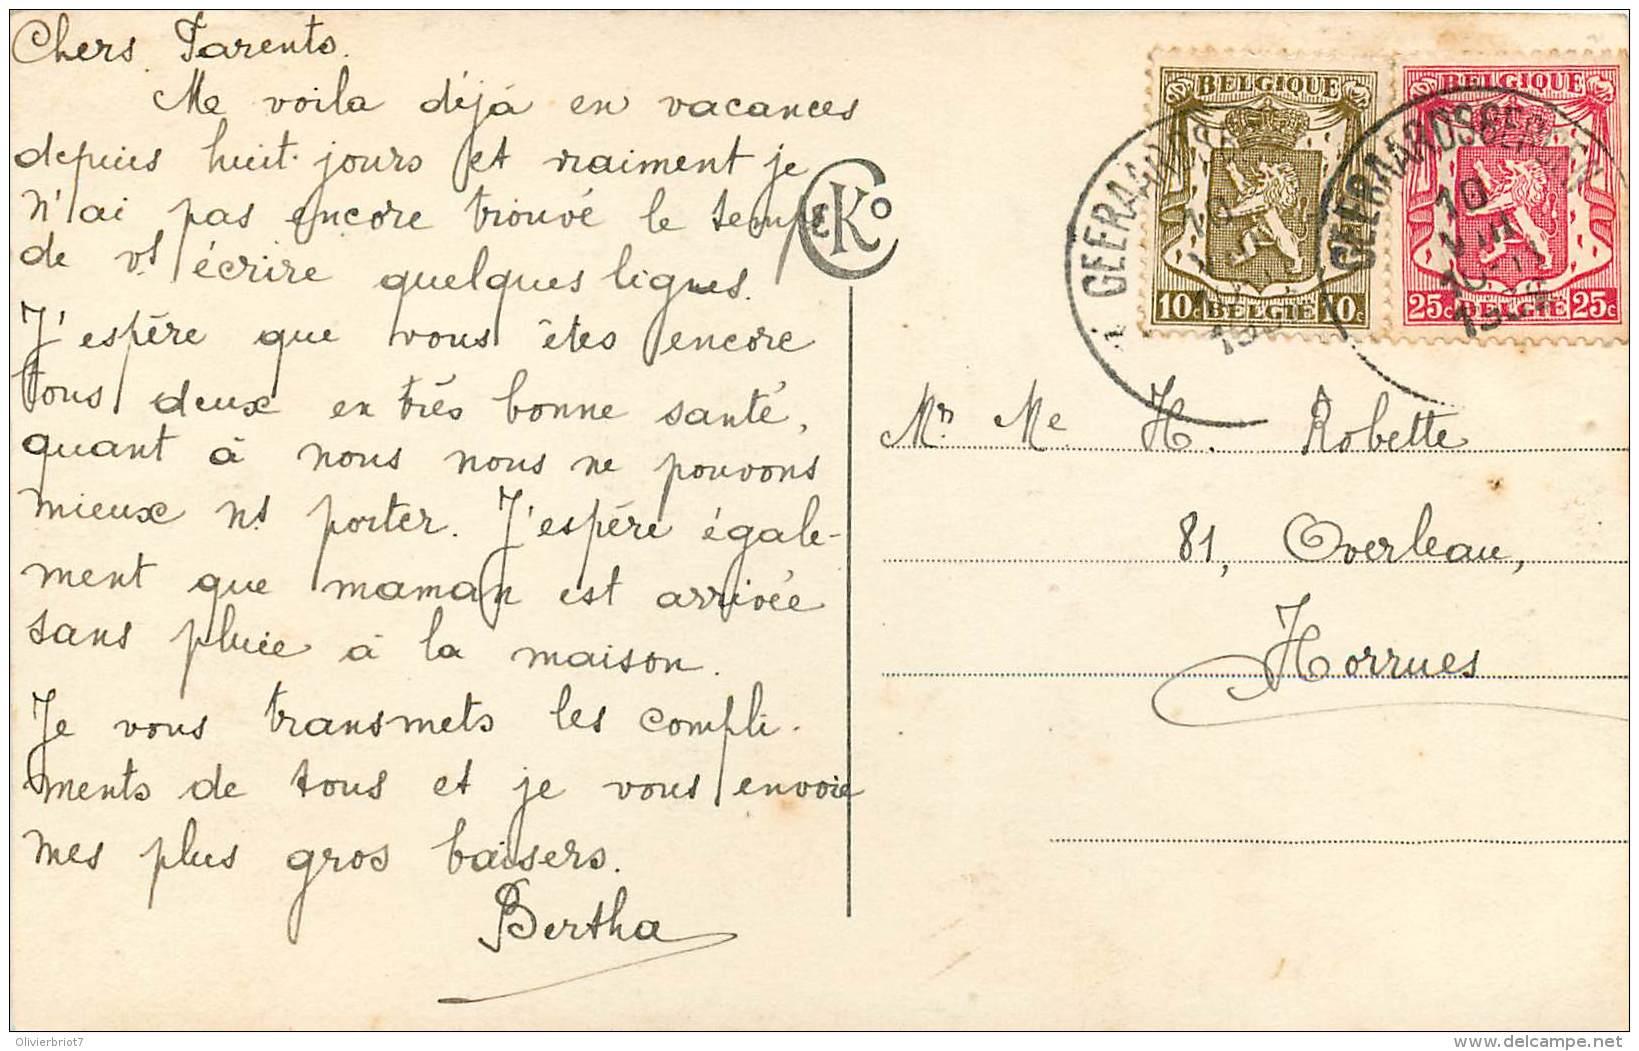 Chers Parents.
Me voila déjà en vacances
depuis huit jours et vraiment je
n'ai pas encore trouvé le temps
de vs écrire quelques lignes.
J'espère que vous êtes encore
tous deux en très bonne santé,
quant à nous nous ne pouvons
mieux ns porter. J'espère égale-
ment que maman est arrivée
sans pluie à la maison.
Je vous transmets les compli-
ments de tous et je vous envoie
mes plus gros baisers.
Bertha
CKo
BELGIQUE
10c BELGIE 10c
BELGIQUE
25c BELGIE 25c
GEERAARDSBERGEN
10
VIII
10-11
Mr Me H. Robette
81, Overleau,
Horrues
Olivierbriot7
delcampe.net